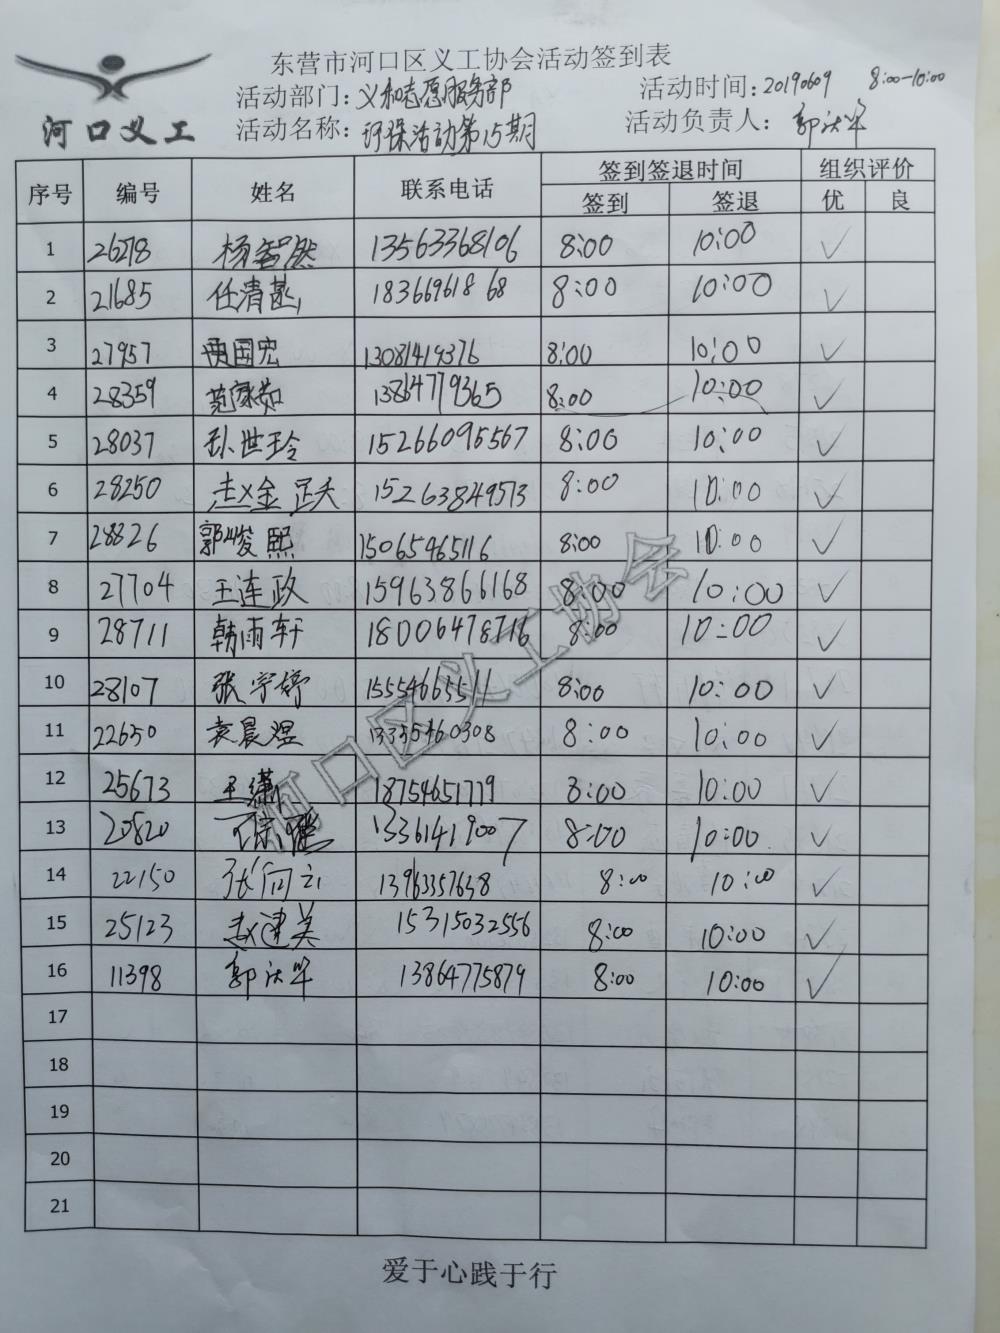 东营市河口区义工协会活动签到表
活动部门：义和志愿服务部 活动时间：20190609 8:00-10:00
河口义工 活动名称：环保活动第15期 活动负责人：郭
序号 编号 姓名 联系电话 签到签退时间 组织评价
签到 签退 优 良
1 26278 杨智然 13563368106 8:00 10:00 ✓
2 21685 任清 18366961868 8:00 10:00 ✓
3 27957 国宏 13081419376 8:00 10:00 ✓
4 28359 范 13864779365 8:00 10:00 ✓
5 28037 孙世玲 15266095567 8:00 10:00 ✓
6 28250 赵金跃 15263849573 8:00 10:00 ✓
7 28826 郭峻熙 15065465116 8:00 10:00 ✓
8 27704 王连政 15963866168 8:00 10:00 ✓
9 28711 韩雨轩 18006478716 8:00 10:00 ✓
10 28107 张宇婷 15554663511 8:00 10:00 ✓
11 22650 袁晨煜 13355460308 8:00 10:00 ✓
12 25673 王潇 18754651779 8:00 10:00 ✓
13 20820 13361419007 8:00 10:00 ✓
14 22150 张向云 13963357638 8:00 10:00 ✓
15 25123 赵建美 15315032556 8:00 10:00 ✓
16 11398 郭 13864775879 8:00 10:00 ✓
17
18
19
20
21
河口区义工协会
爱于心践于行